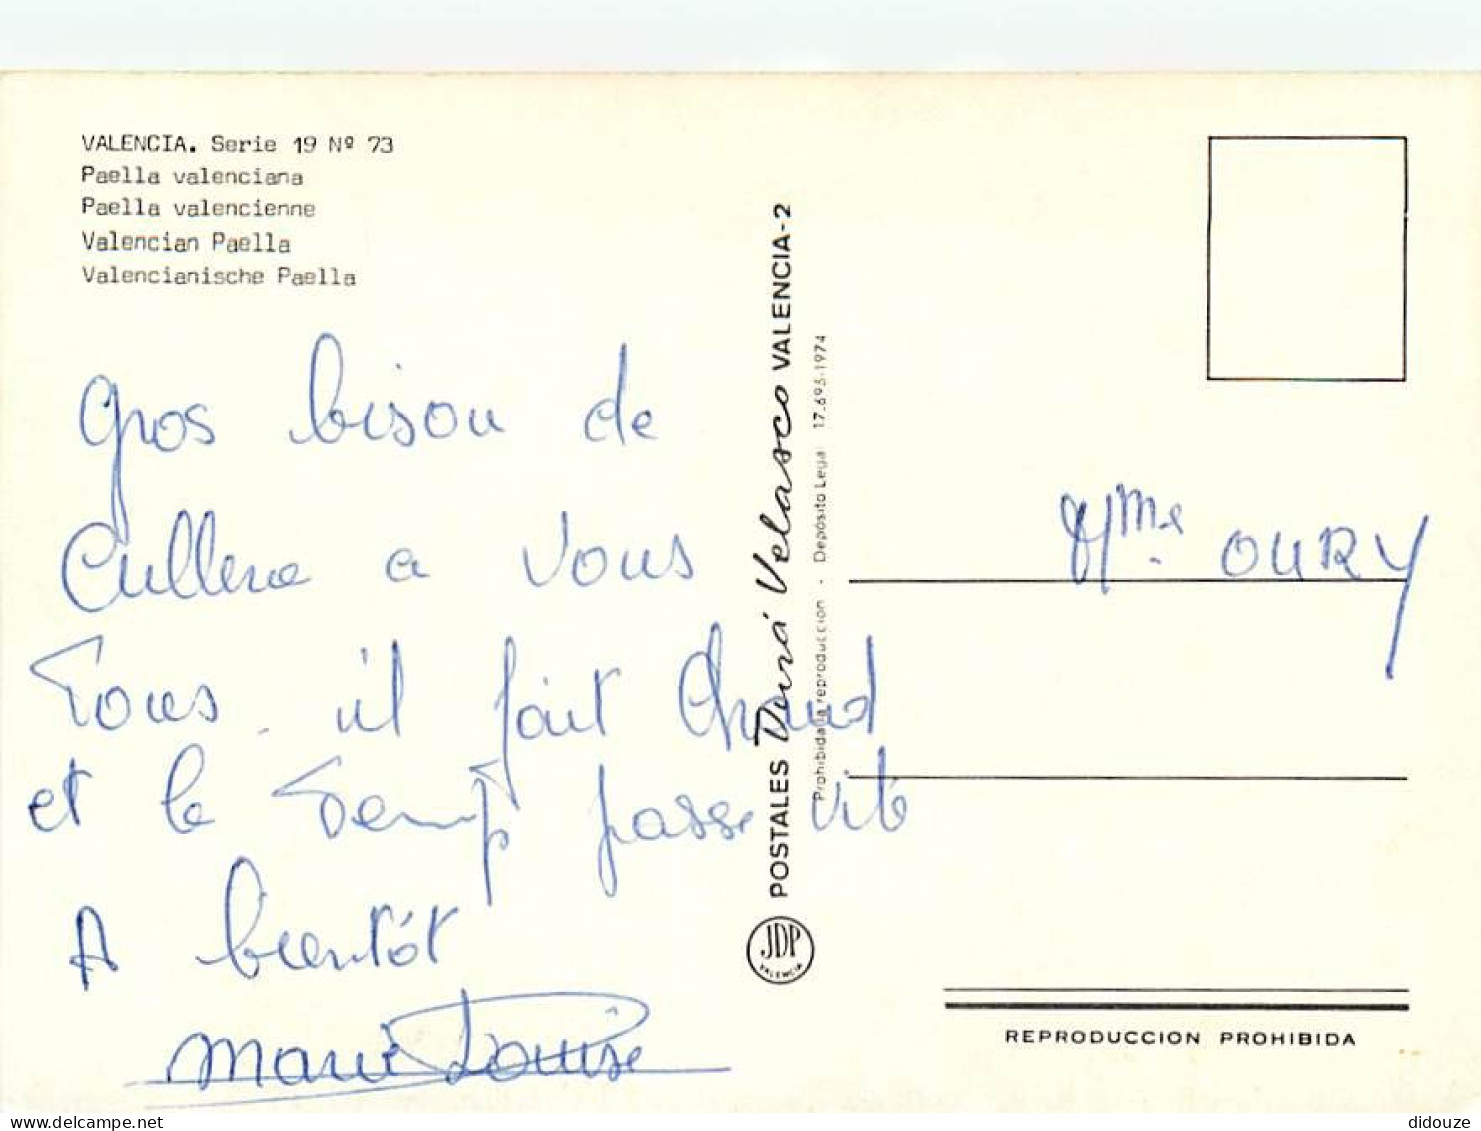 VALENCIA. Serie 19 Nº 73
Paella valenciana
Paella valencienne
Valencian Paella
Valencianische Paella
Gros bisou de
Cullera a vous
Tous. il fait Chaud
et le Temp passe vite
A bientôt
Marie Louise
POSTALES Durá Velasco VALENCIA-2
Prohibida la reproduccion - Depósito Legal 17.693-1974
JDP
VALENCIA
Mme OURY
REPRODUCCION PROHIBIDA
didouze